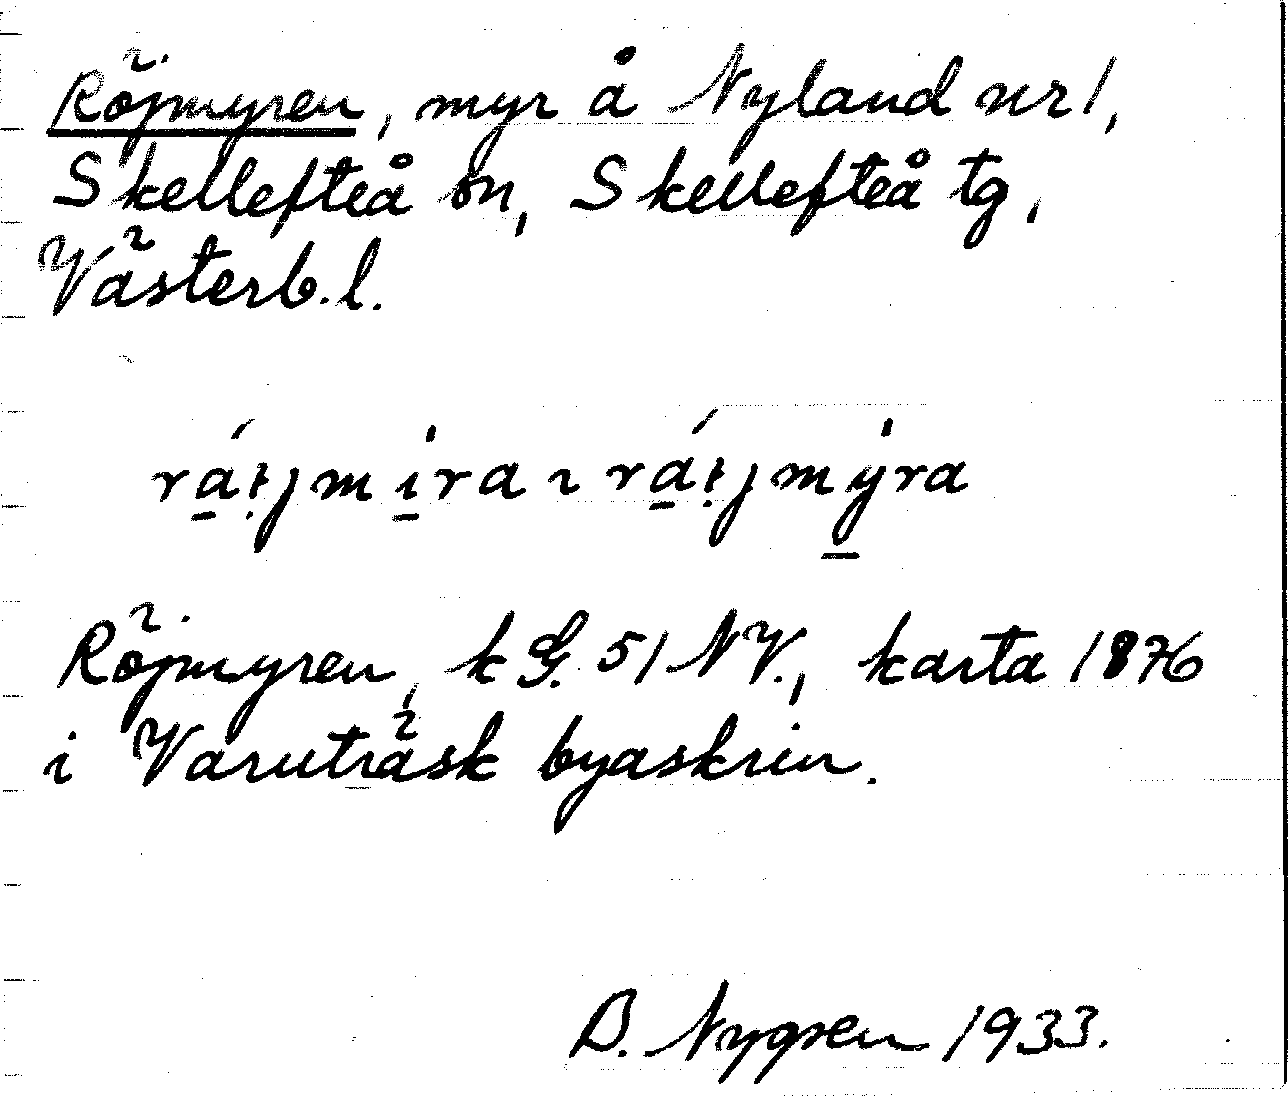 Röjmyren, myr å Nyland nr 1,
Skellefteå sn, Skellefteå tg,
Västerb. l.
Röjmyren, k G. 51 NV., karta 1876
i Varuträsk byaskrin.
B. Nygren 1933.